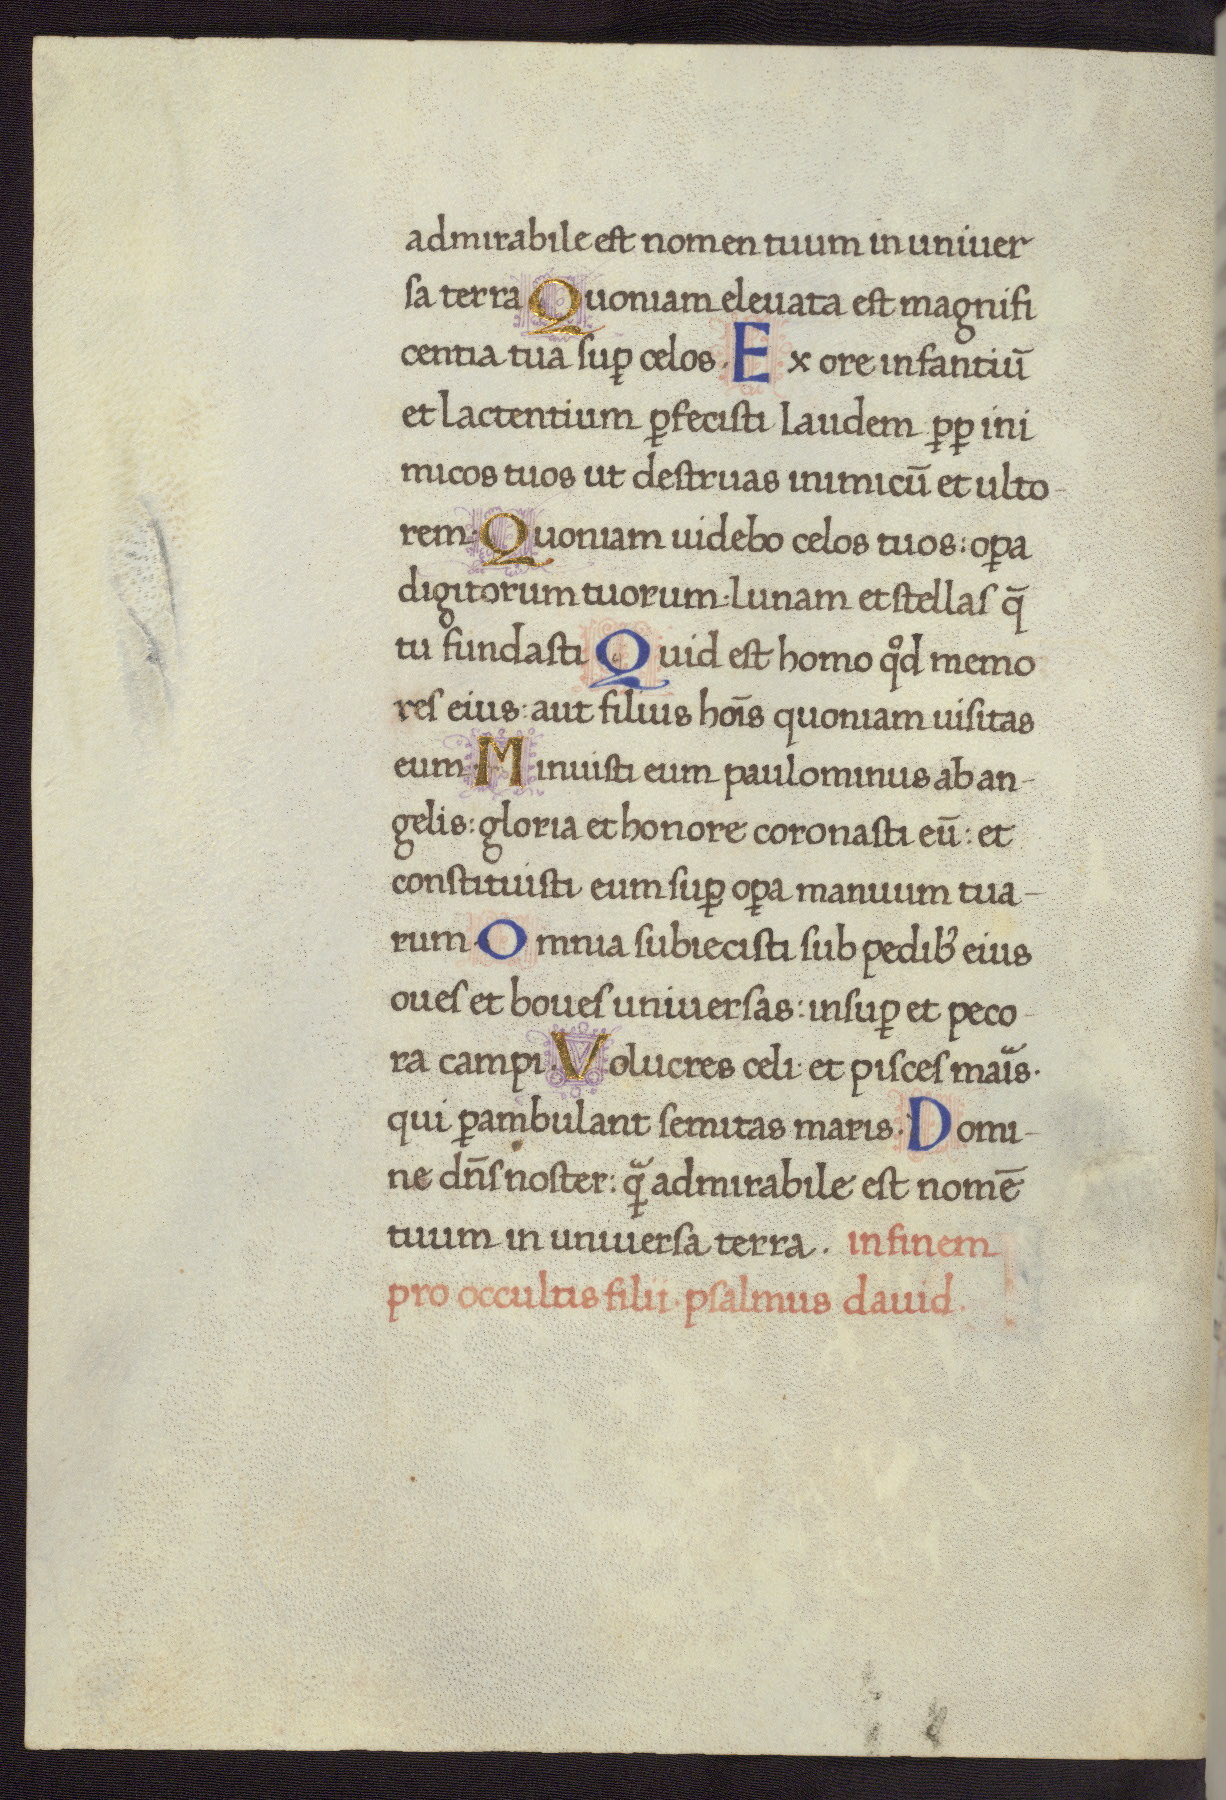 admirabile est nomen tuum in uniuer
sa terra Quoniam eleuata est magnifi
centia tua suꝑ celos. Ex ore infantiū
et lactentium ꝑfecisti laudem ꝑꝑ ini
micos tuos ut destruas inimicū et ulto-
rem. Quoniam uidebo celos tuos: oꝑa
digitorum tuorum. lunam et stellas q̄
tu fundasti Quid est homo qͦd memo
res eius: aut filius hoīs quoniam uisitas
eum. Minuisti eum paulominus ab an-
gelis: gloria et honore coronasti eū: et
constituisti eum suꝑ oꝑa manuum tua-
rum. Omnia subiecisti sub pedib; eius
oues et boues uniuersas: insuꝑ et peco-
ra campi. Volucres celi et pisces maīs.
qui ꝑambulant semitas maris. Domi-
ne dn̄s noster: qᷓ admirabile est nomē
tuum in uniuersa terra. in finem
pro occultis filii. psalmus dauid.